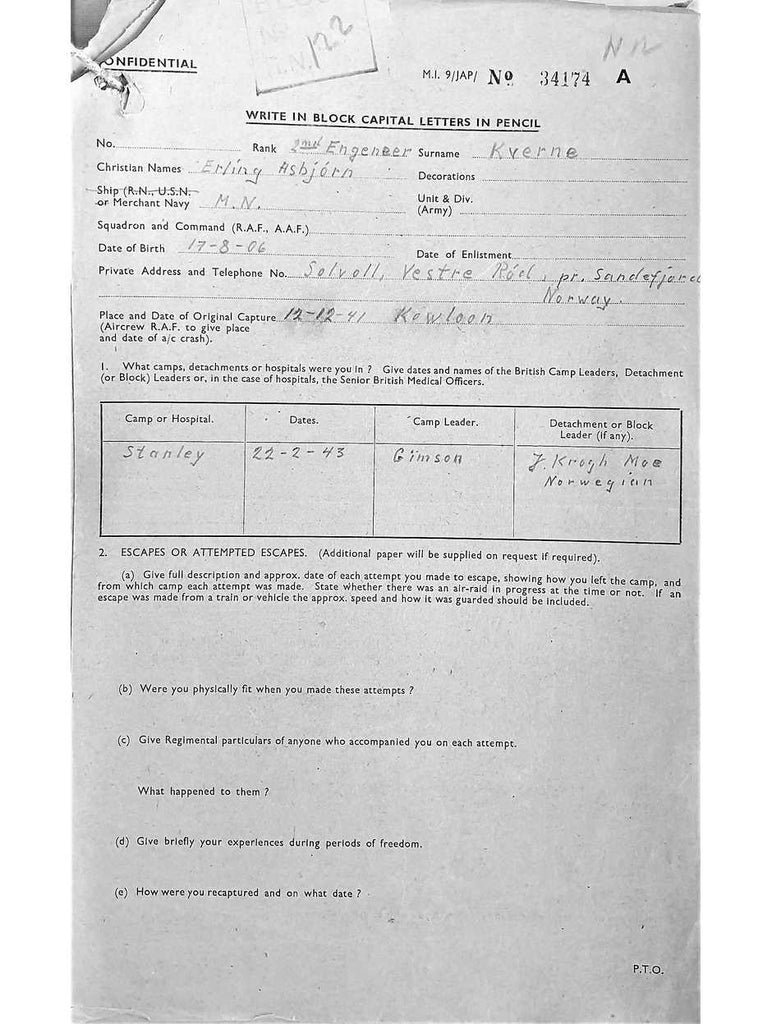 CONFIDENTIAL
122
N 12
M.I. 9/JAP/ No 34174 A
WRITE IN BLOCK CAPITAL LETTERS IN PENCIL
No. Rank 2nd Engeneer Surname Kverne
Christian Names Erling Asbjörn Decorations
Ship (R.N., U.S.N.
or Merchant Navy M.N. Unit & Div.
(Army)
Squadron and Command (R.A.F., A.A.F.)
Date of Birth 17-8-06 Date of Enlistment
Private Address and Telephone No. Solvoll, Vestre Röd, pr. Sandefjord
Norway.
Place and Date of Original Capture 12-12-41 Kowloon
(Aircrew R.A.F. to give place
and date of a/c crash).
1. What camps, detachments or hospitals were you in ? Give dates and names of the British Camp Leaders, Detachment
(or Block) Leaders or, in the case of hospitals, the Senior British Medical Officers.
Camp or Hospital. Dates. Camp Leader. Detachment or Block
Leader (if any).
Stanley 22-2-43 Gimson J. Krogh Moe
Norwegian
2. ESCAPES OR ATTEMPTED ESCAPES. (Additional paper will be supplied on request if required).
(a) Give full description and approx. date of each attempt you made to escape, showing how you left the camp, and
from which camp each attempt was made. State whether there was an air-raid in progress at the time or not. If an
escape was made from a train or vehicle the approx. speed and how it was guarded should be included.
(b) Were you physically fit when you made these attempts ?
(c) Give Regimental particulars of anyone who accompanied you on each attempt.
What happened to them ?
(d) Give briefly your experiences during periods of freedom.
(e) How were you recaptured and on what date ?
P.T.O.